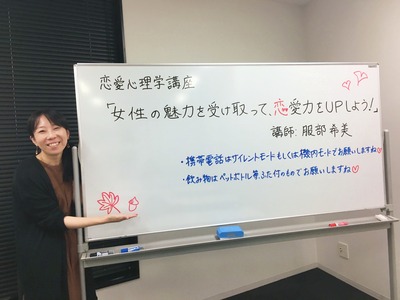 恋愛心理学講座
「女性の魅力を受け取って、恋愛力をUPしよう!」
講師:服部 希美
・携帯電話はサイレントモードもしくは機内モードでお願いしますね♡
・飲み物はペットボトル等、ふた付のものでお願いしますね♡